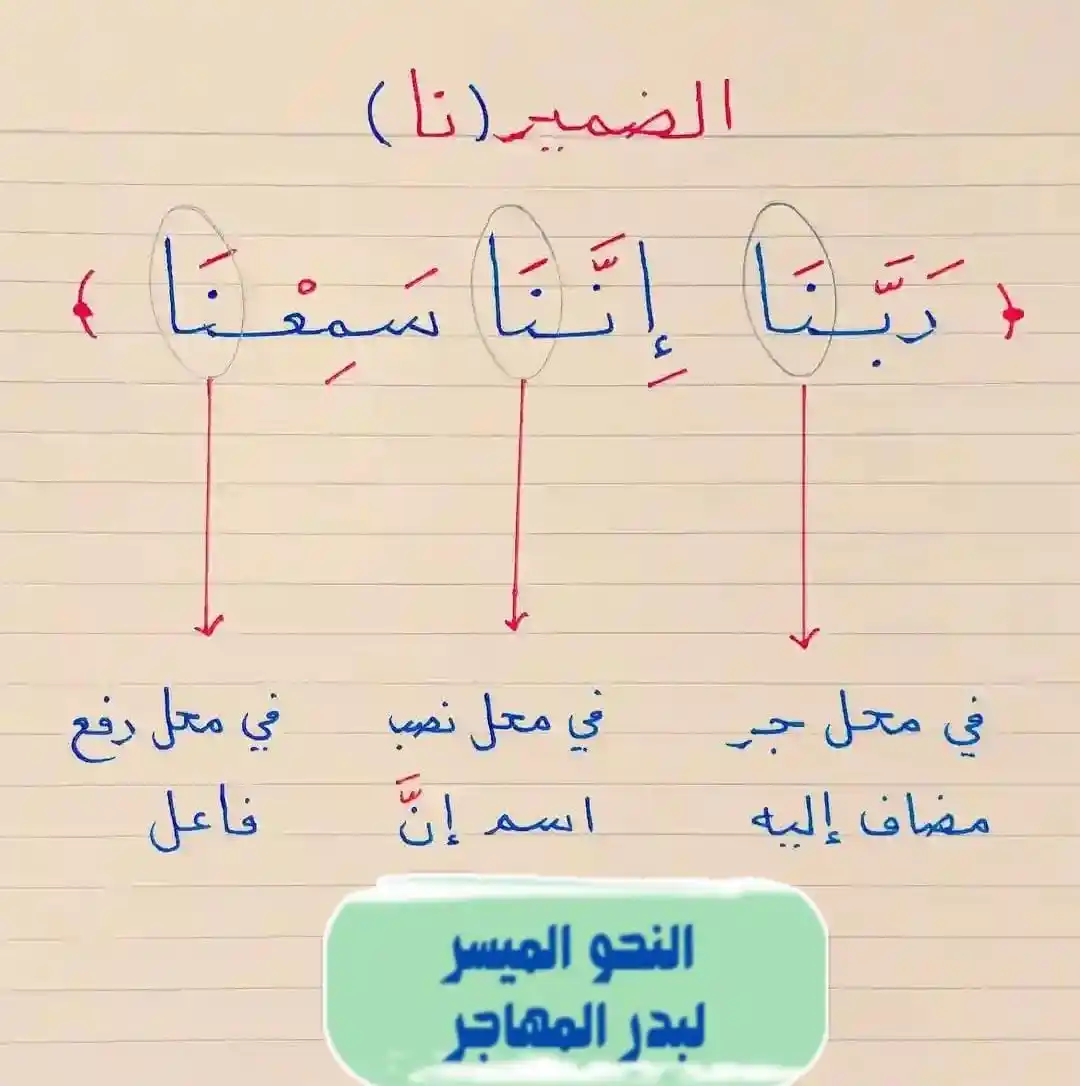 الضمير (نا)
﴿ رَبَّنَا إِنَّنَا سَمِعْنَا ﴾
في محل جر في محل نصب في محل رفع
مضاف إليه اسم إنَّ فاعل
النحو الميسر
لبدر المهاجر